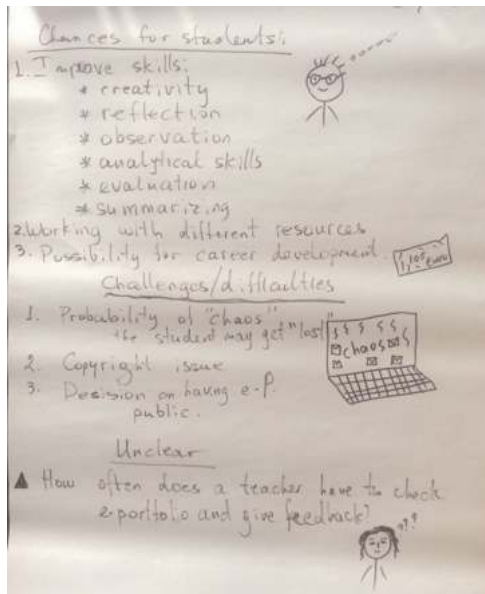 Chances for students:
1. Improve skills:
* creativity
* reflection
* observation
* analytical skills
* evaluation
* summarizing
2. Working with different resources
3. Possibility for career development.
Challenges/difficulties
1. Probability of "chaos"
the student may get "lost"
chaos
2. Copyright issue
3. Decision on having e-P.
public.
Unclear
▲ How often does a teacher have to check
e-portfolio and give feedback?
???